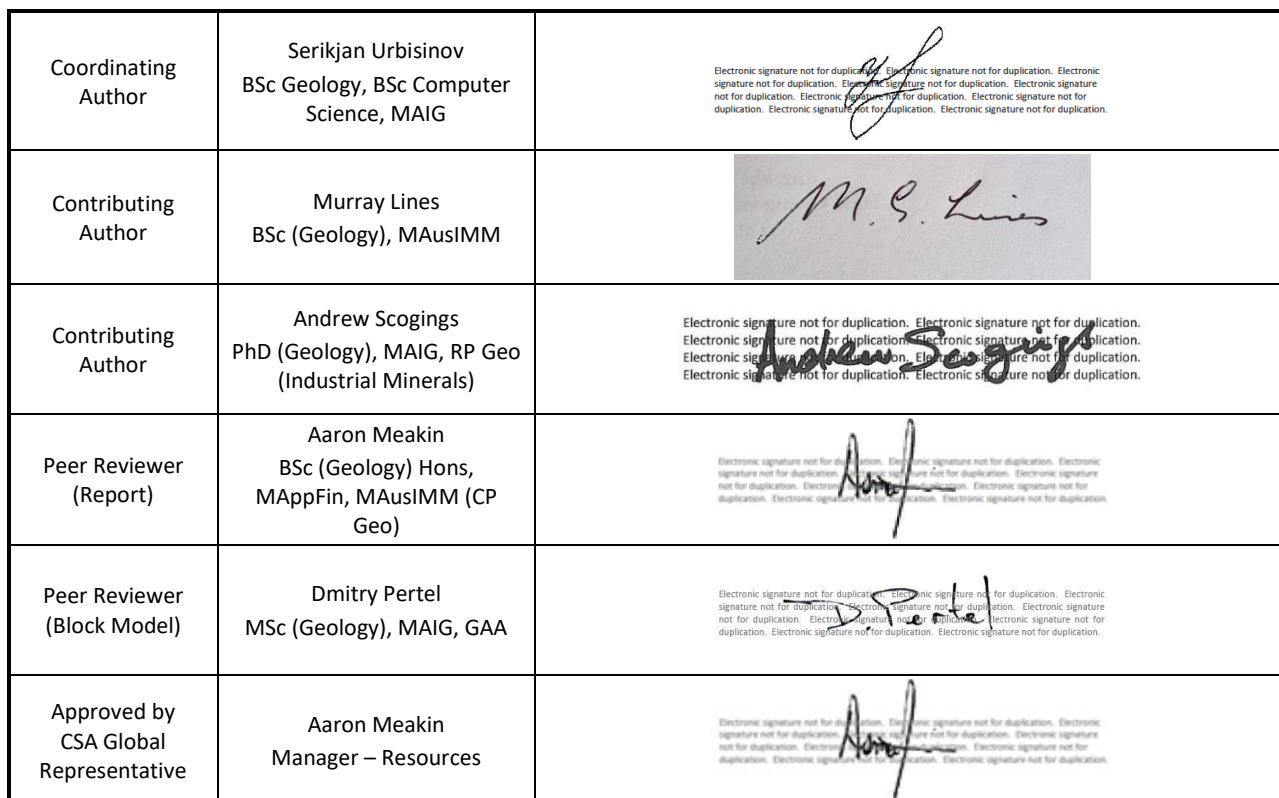 Coordinating
Author
Serikjan Urbisinov
BSc Geology, BSc Computer
Science, MAIG
Electronic signature not for duplication. Electronic signature not for duplication. Electronic
signature not for duplication. Electronic signature not for duplication. Electronic signature
not for duplication. Electronic signature not for duplication. Electronic signature not for
duplication. Electronic signature not for duplication. Electronic signature not for duplication.
Contributing
Author
Murray Lines
BSc (Geology), MAusIMM
M. G. Lines
Contributing
Author
Andrew Scogings
PhD (Geology), MAIG, RP Geo
(Industrial Minerals)
Electronic signature not for duplication. Electronic signature not for duplication.
Electronic signature not for duplication. Electronic signature not for duplication.
Electronic signature not for duplication. Electronic signature not for duplication.
Electronic signature not for duplication. Electronic signature not for duplication.
Andrew Scogings
Peer Reviewer
(Report)
Aaron Meakin
BSc (Geology) Hons,
MAppFin, MAusIMM (CP
Geo)
Electronic signature not for duplication. Electronic signature not for duplication. Electronic
signature not for duplication. Electronic signature not for duplication. Electronic signature
not for duplication. Electronic signature not for duplication. Electronic signature not for
duplication. Electronic signature not for duplication. Electronic signature not for duplication.
Peer Reviewer
(Block Model)
Dmitry Pertel
MSc (Geology), MAIG, GAA
Electronic signature not for duplication. Electronic signature not for duplication. Electronic
signature not for duplication. Electronic signature not for duplication. Electronic signature
not for duplication. Electronic signature not for duplication. Electronic signature not for
duplication. Electronic signature not for duplication. Electronic signature not for duplication.
D. Pertel
Approved by
CSA Global
Representative
Aaron Meakin
Manager – Resources
Electronic signature not for duplication. Electronic signature not for duplication. Electronic
signature not for duplication. Electronic signature not for duplication. Electronic signature
not for duplication. Electronic signature not for duplication. Electronic signature not for
duplication. Electronic signature not for duplication. Electronic signature not for duplication.